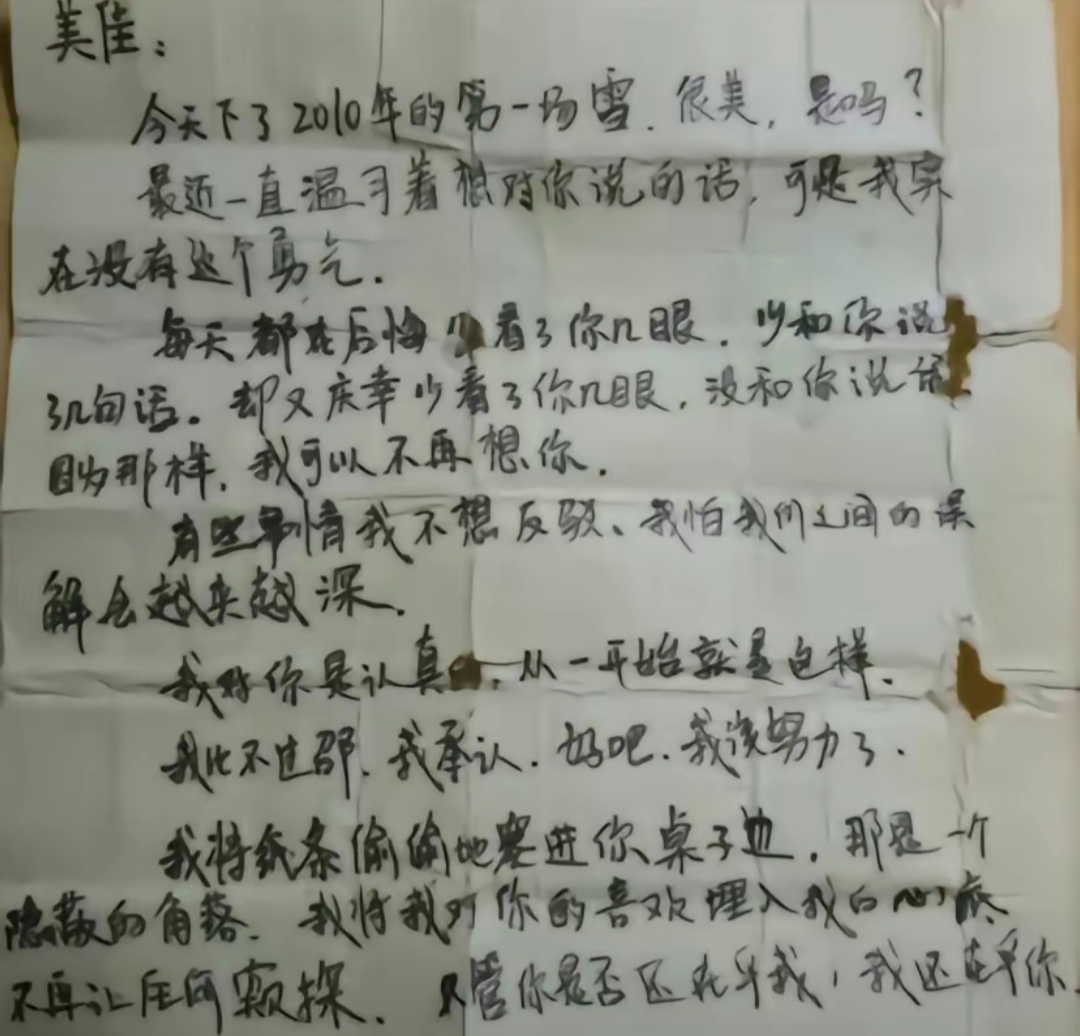 美佳：
今天下了2010年的第一场雪.很美,是吗?
最近一直温习着想对你说的话,可是我实
在没有这个勇气.
每天都在后悔少看了你几眼.少和你说
了几句话。却又庆幸少看了你几眼,没和你说话
因为那样,我可以不再想你.
有些事情我不想反驳、我怕我们之间的误
解会越来越深.
我对你是认真,从一开始就是这样.
我比不过邵.我承认.好吧.我该努力了.
我将纸条偷偷地塞进你桌子边.那是一个
隐蔽的角落.我将我对你的喜欢埋入我的心底
不再让任何窥探.不管你是否还在乎我,我还在乎你.